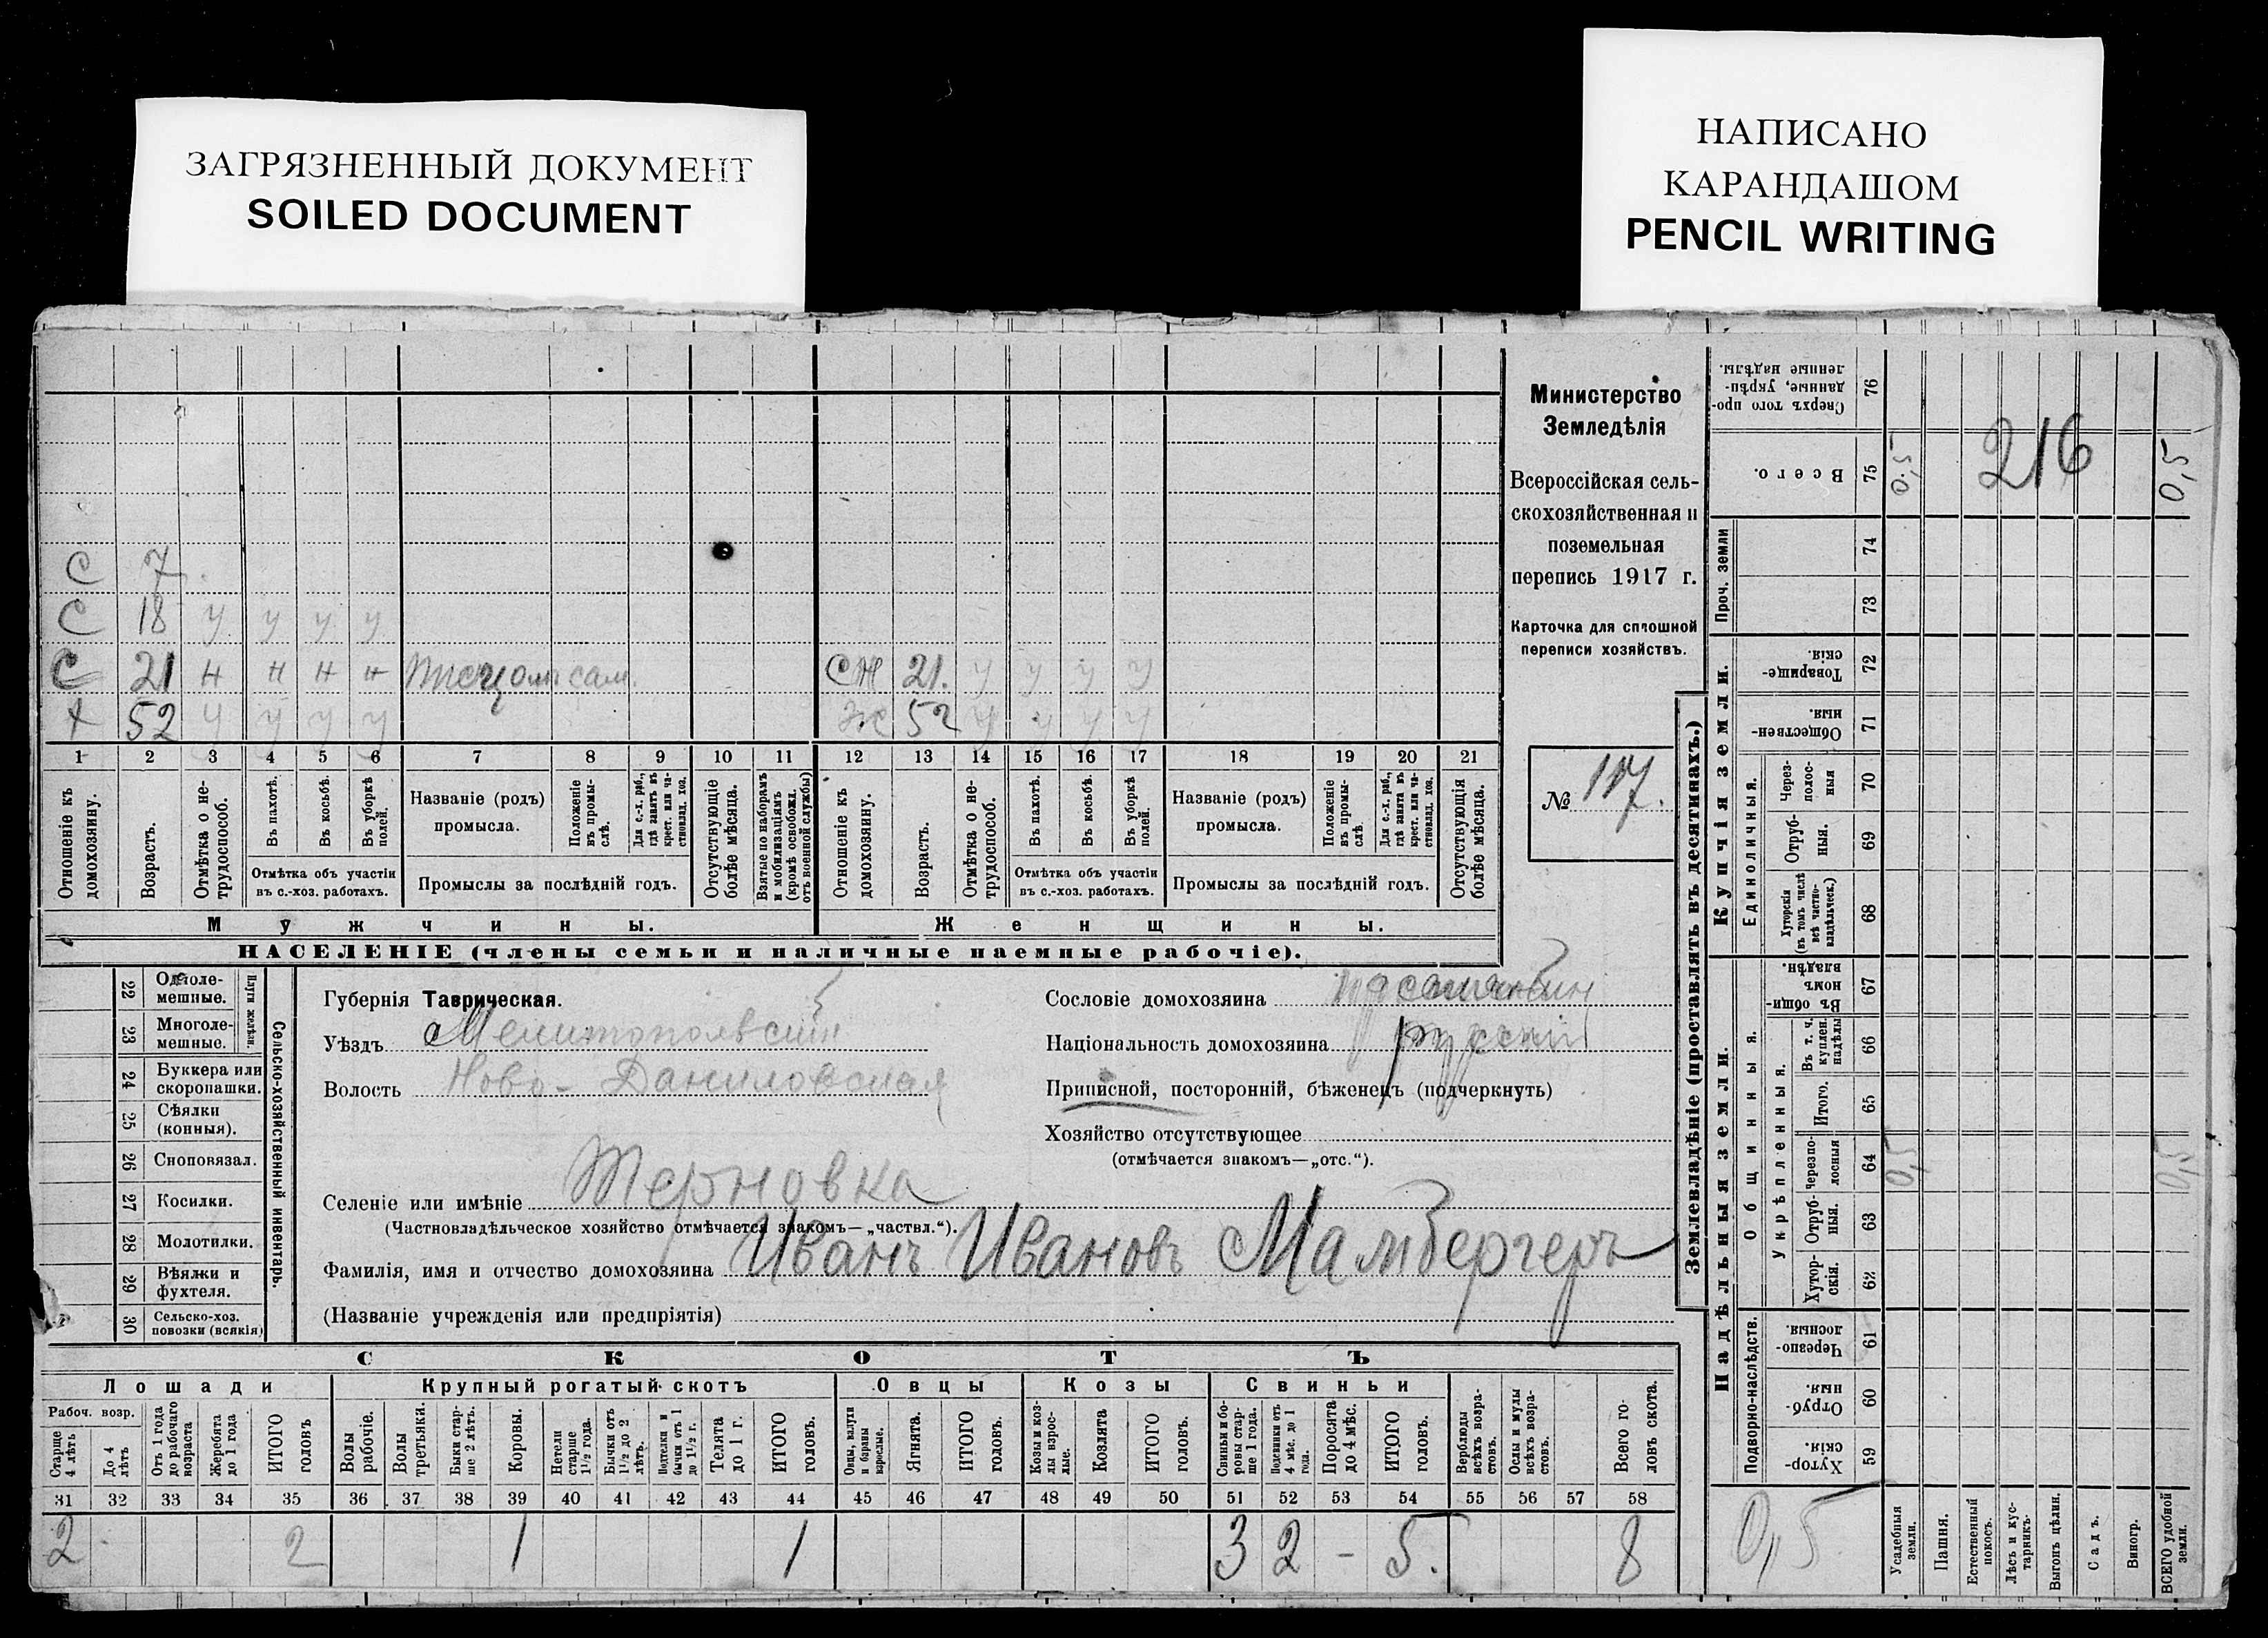 ЗАГРЯЗНЕННЫЙ ДОКУМЕНТ
SOILED DOCUMENT
НАПИСАНО
КАРАНДАШОМ
PENCIL WRITING
С 7
С 18 у у у у
С 21 н н н н СЖ 21. у у у у
х 52 у у у у Ж 52 у у у у
1 2 3 4 5 6 7 8 9 10 11 12 13 14 15 16 17 18 19 20 21
Отношеніе къ домохозяину.
Возрастъ.
Отмѣтка о не-трудоспособ.
Въ пахотѣ.
Въ косьбѣ.
Въ уборкѣ полей.
Отмѣтка объ участіи
въ с.-хоз. работахъ.
Названіе (родъ)
промысла.
Положеніе въ промы-слѣ.
Для с.-х. раб., гдѣ занятъ въ крест. или ча-стновлад. хоз.
Промыслы за послѣдній годъ.
Отсутствующіе болѣе мѣсяца.
Взятые по наборамъ и мобилизаціямъ (кромѣ освобожд. отъ военной службы)
Отношеніе къ домохозяину.
Возрастъ.
Отмѣтка о не-трудоспособ.
Въ пахотѣ.
Въ косьбѣ.
Въ уборкѣ полей.
Отмѣтка объ участіи
въ с.-хоз. работахъ.
Названіе (родъ)
промысла.
Положеніе въ промы-слѣ.
Для с.-х. раб., гдѣ занята въ крест. или ча-стновлад. хоз.
Промыслы за послѣдній годъ.
Отсутствующія болѣе мѣсяца.
Мужчины.
Женщины.
НАСЕЛЕНІЕ (члены семьи и наличные наемные рабочіе).
Министерство
Земледѣлія
Всероссійская сель-
скохозяйственная и
поземельная
перепись 1917 г.
Карточка для сплошной
переписи хозяйствъ.
№ 117.
22 Одноле-мешные.
23 Многоле-мешные.
Плуги желѣзн.
24 Буккера или скоропашки.
25 Сѣялки (конныя).
26 Сноповязал.
27 Косилки.
28 Молотилки.
29 Вѣялки и фухтеля.
30 Сельско-хоз. повозки (всякія)
Сельско-хозяйственный инвентарь.
Губернія Таврическая.
Уѣздъ Мелитопольскій
Волость Ново-Даниловская
Селеніе или имѣніе Терновка
(Частновладѣльческое хозяйство отмѣчается знакомъ—„частвл.“).
Фамилія, имя и отчество домохозяина Иванъ Ивановъ Мамбергеръ
(Названіе учрежденія или предпріятія)
Сословіе домохозяина
Національность домохозяина русскій
Приписной, посторонній, бѣженецъ (подчеркнуть)
Хозяйство отсутствующее
(отмѣчается знакомъ—„отс.“).
СКОТЪ
Лошади
Рабоч. возр.
Старше 4 лѣтъ
До 4 лѣтъ
Отъ 1 года до рабочаго возраста
Жеребята до 1 года
ИТОГО головъ
Крупный рогатый скотъ
Волы рабочіе.
Волы третьяки.
Быки стар-ше 2 лѣтъ.
Коровы.
Нетели старше 1½ года.
Бычки отъ 1½ до 2 лѣтъ.
Подтелки и бычки отъ 1 до 1½ г.
Телята до 1 г.
ИТОГО головъ.
Овцы
Овцы, валухи и бараны взрослые.
Ягнята.
ИТОГО головъ.
Козы
Козы и коз-лы взрос-лые.
Козлята
ИТОГО головъ.
Свиньи
Свиньи и бо-ровы стар-ше 1 года.
Подсвинки отъ 4 мѣс. до 1 года.
Поросята до 4 мѣс.
ИТОГО головъ.
Верблюды всѣхъ возра-стовъ.
Ослы и мулы всѣхъ возра-стовъ.
Всего го-ловъ скота.
31 32 33 34 35 36 37 38 39 40 41 42 43 44 45 46 47 48 49 50 51 52 53 54 55 56 57 58
2 2 1 1 3 2 - 5. 8
Землевладѣніе (проставлять въ десятинахъ.)
Купчія земли.
Надѣльныя земли.
Сверхъ того про-данные, укрѣп-ленные надѣлы. 76
Всего. 75 0,5 216 0,5
Проч. земли
74
73
Товарище-скія. 72
Обществен-ныя. 71
Единоличныя.
Через-полос-ныя 70
Отруб-ныя. 69
Хуторскія (въ томъ числѣ всѣ частно-владѣльческ.) 68
Общинныя.
Въ общи-номъ владѣн. 67
Укрѣпленныя.
Въ т. ч. куплен. надѣлы 66
Итого. 65
Черезпо-лосныя 64 0,5 0,5
Отруб-ныя. 63
Хутор-скія. 62
Подворно-наслѣдств.
Черезпо-лосныя. 61
Отруб-ныя. 60
Хутор-скія. 59
0,5
Усадебныя земли.
Пашня.
Естественный покосъ.
Лѣсъ и кус-тарникъ.
Выгонъ цѣлин.
Садъ.
Виногр.
ВСЕГО удобной земли.